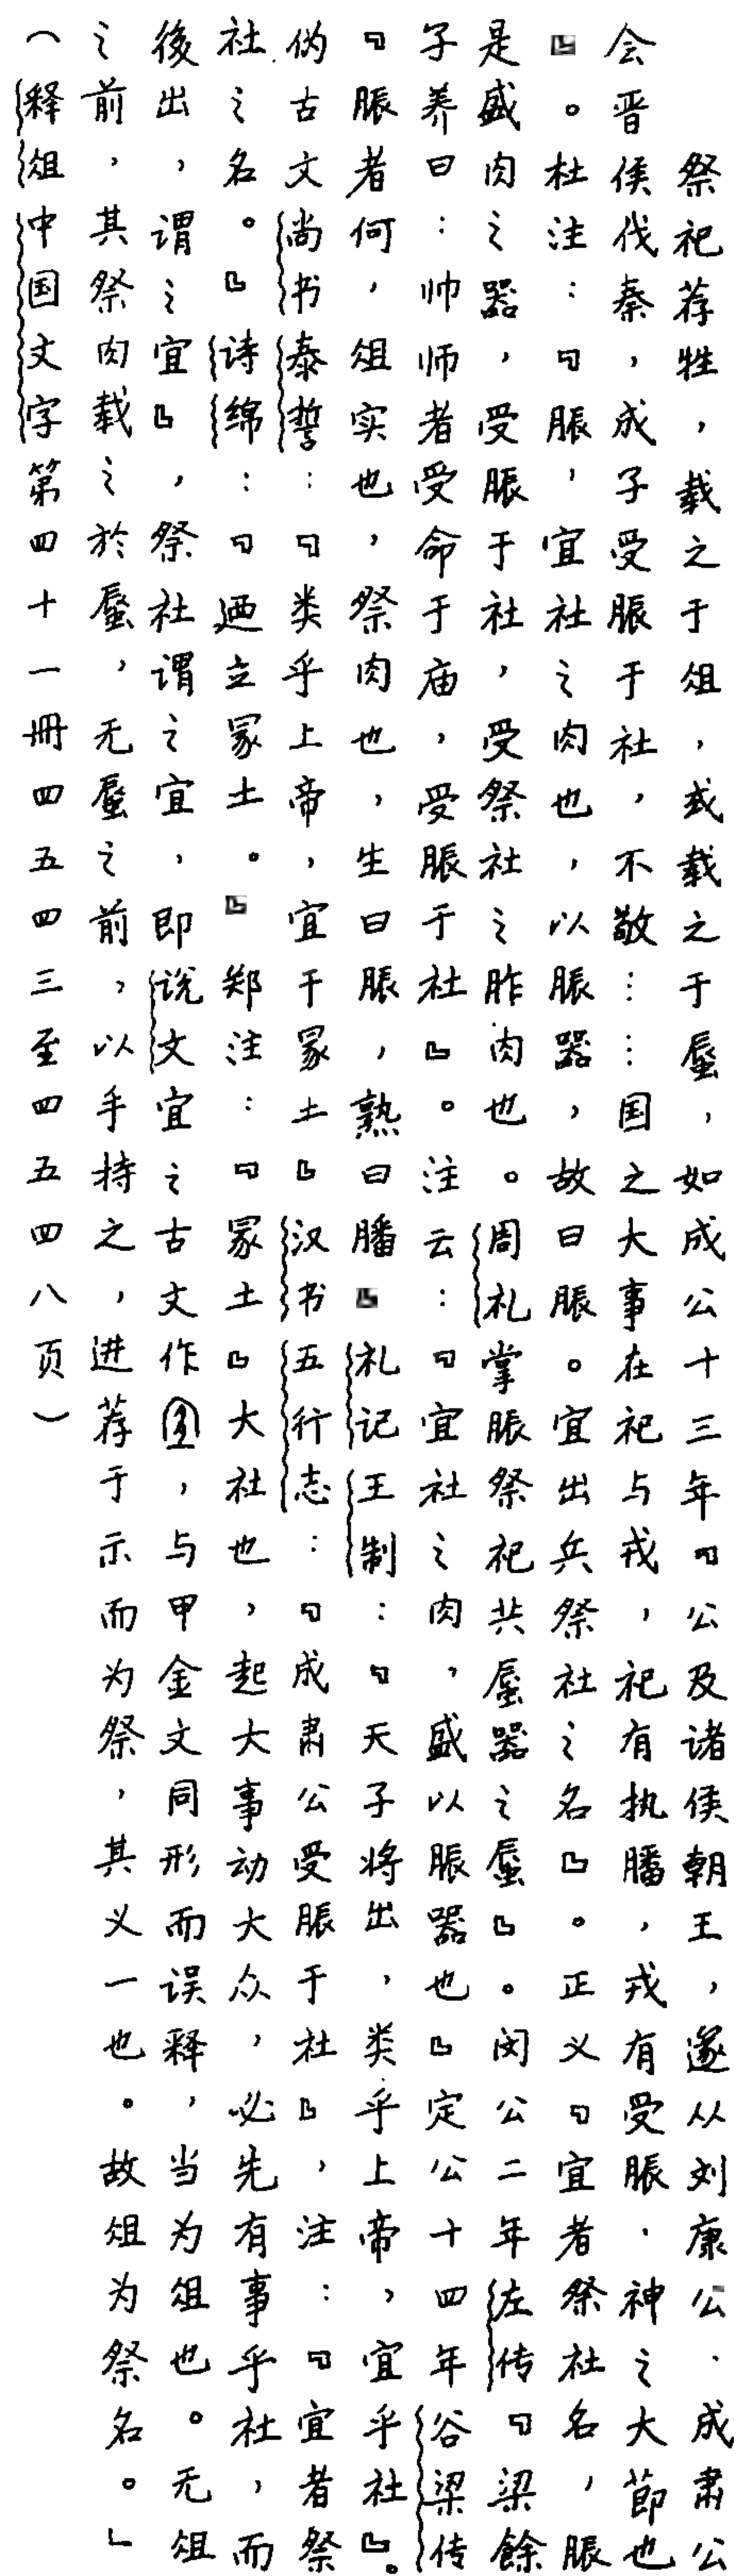 祭祀荐牲，载之于俎，或载之于蜃，如成公十三年『公及诸侯朝王，遂从刘康公．成肃公
会晋侯伐秦，成子受脤于社，不敬……国之大事在祀与戎，祀有执膰，戎有受脤．神之大節也
』。杜注：『脤，宜社之肉也，以脤器，故曰脤。宜出兵祭社之名』。正义『宜者祭社名，脤
是盛肉之器，受脤于社，受祭社之胙肉也。周礼掌脤祭祀共蜃器之蜃』。闵公二年左传『梁餘
子养曰：帅师者受命于庙，受脤于社』。注云：『宜社之肉，盛以脤器也』定公十四年谷梁传
『脤者何，俎实也，祭肉也，生曰脤，熟曰膰』礼记王制：『天子将出，类乎上帝，宜乎社』。
伪古文尚书泰誓：『类乎上帝，宜于冢土』汉书五行志：『成肃公受脤于社』，注：『宜者祭
社之名。』诗绵：『迺立冢土。』郑注：『冢土』大社也，起大事动大众，必先有事乎社，而
後出，谓之宜』，祭社谓之宜，即说文宜之古文作，与甲金文同形而误释，当为俎也。无俎
之前，其祭肉载之於蜃，无蜃之前，以手持之，进荐于示而为祭，其义一也。故俎为祭名。」
（释俎中国文字第四十一冊四五四三至四五四八页）